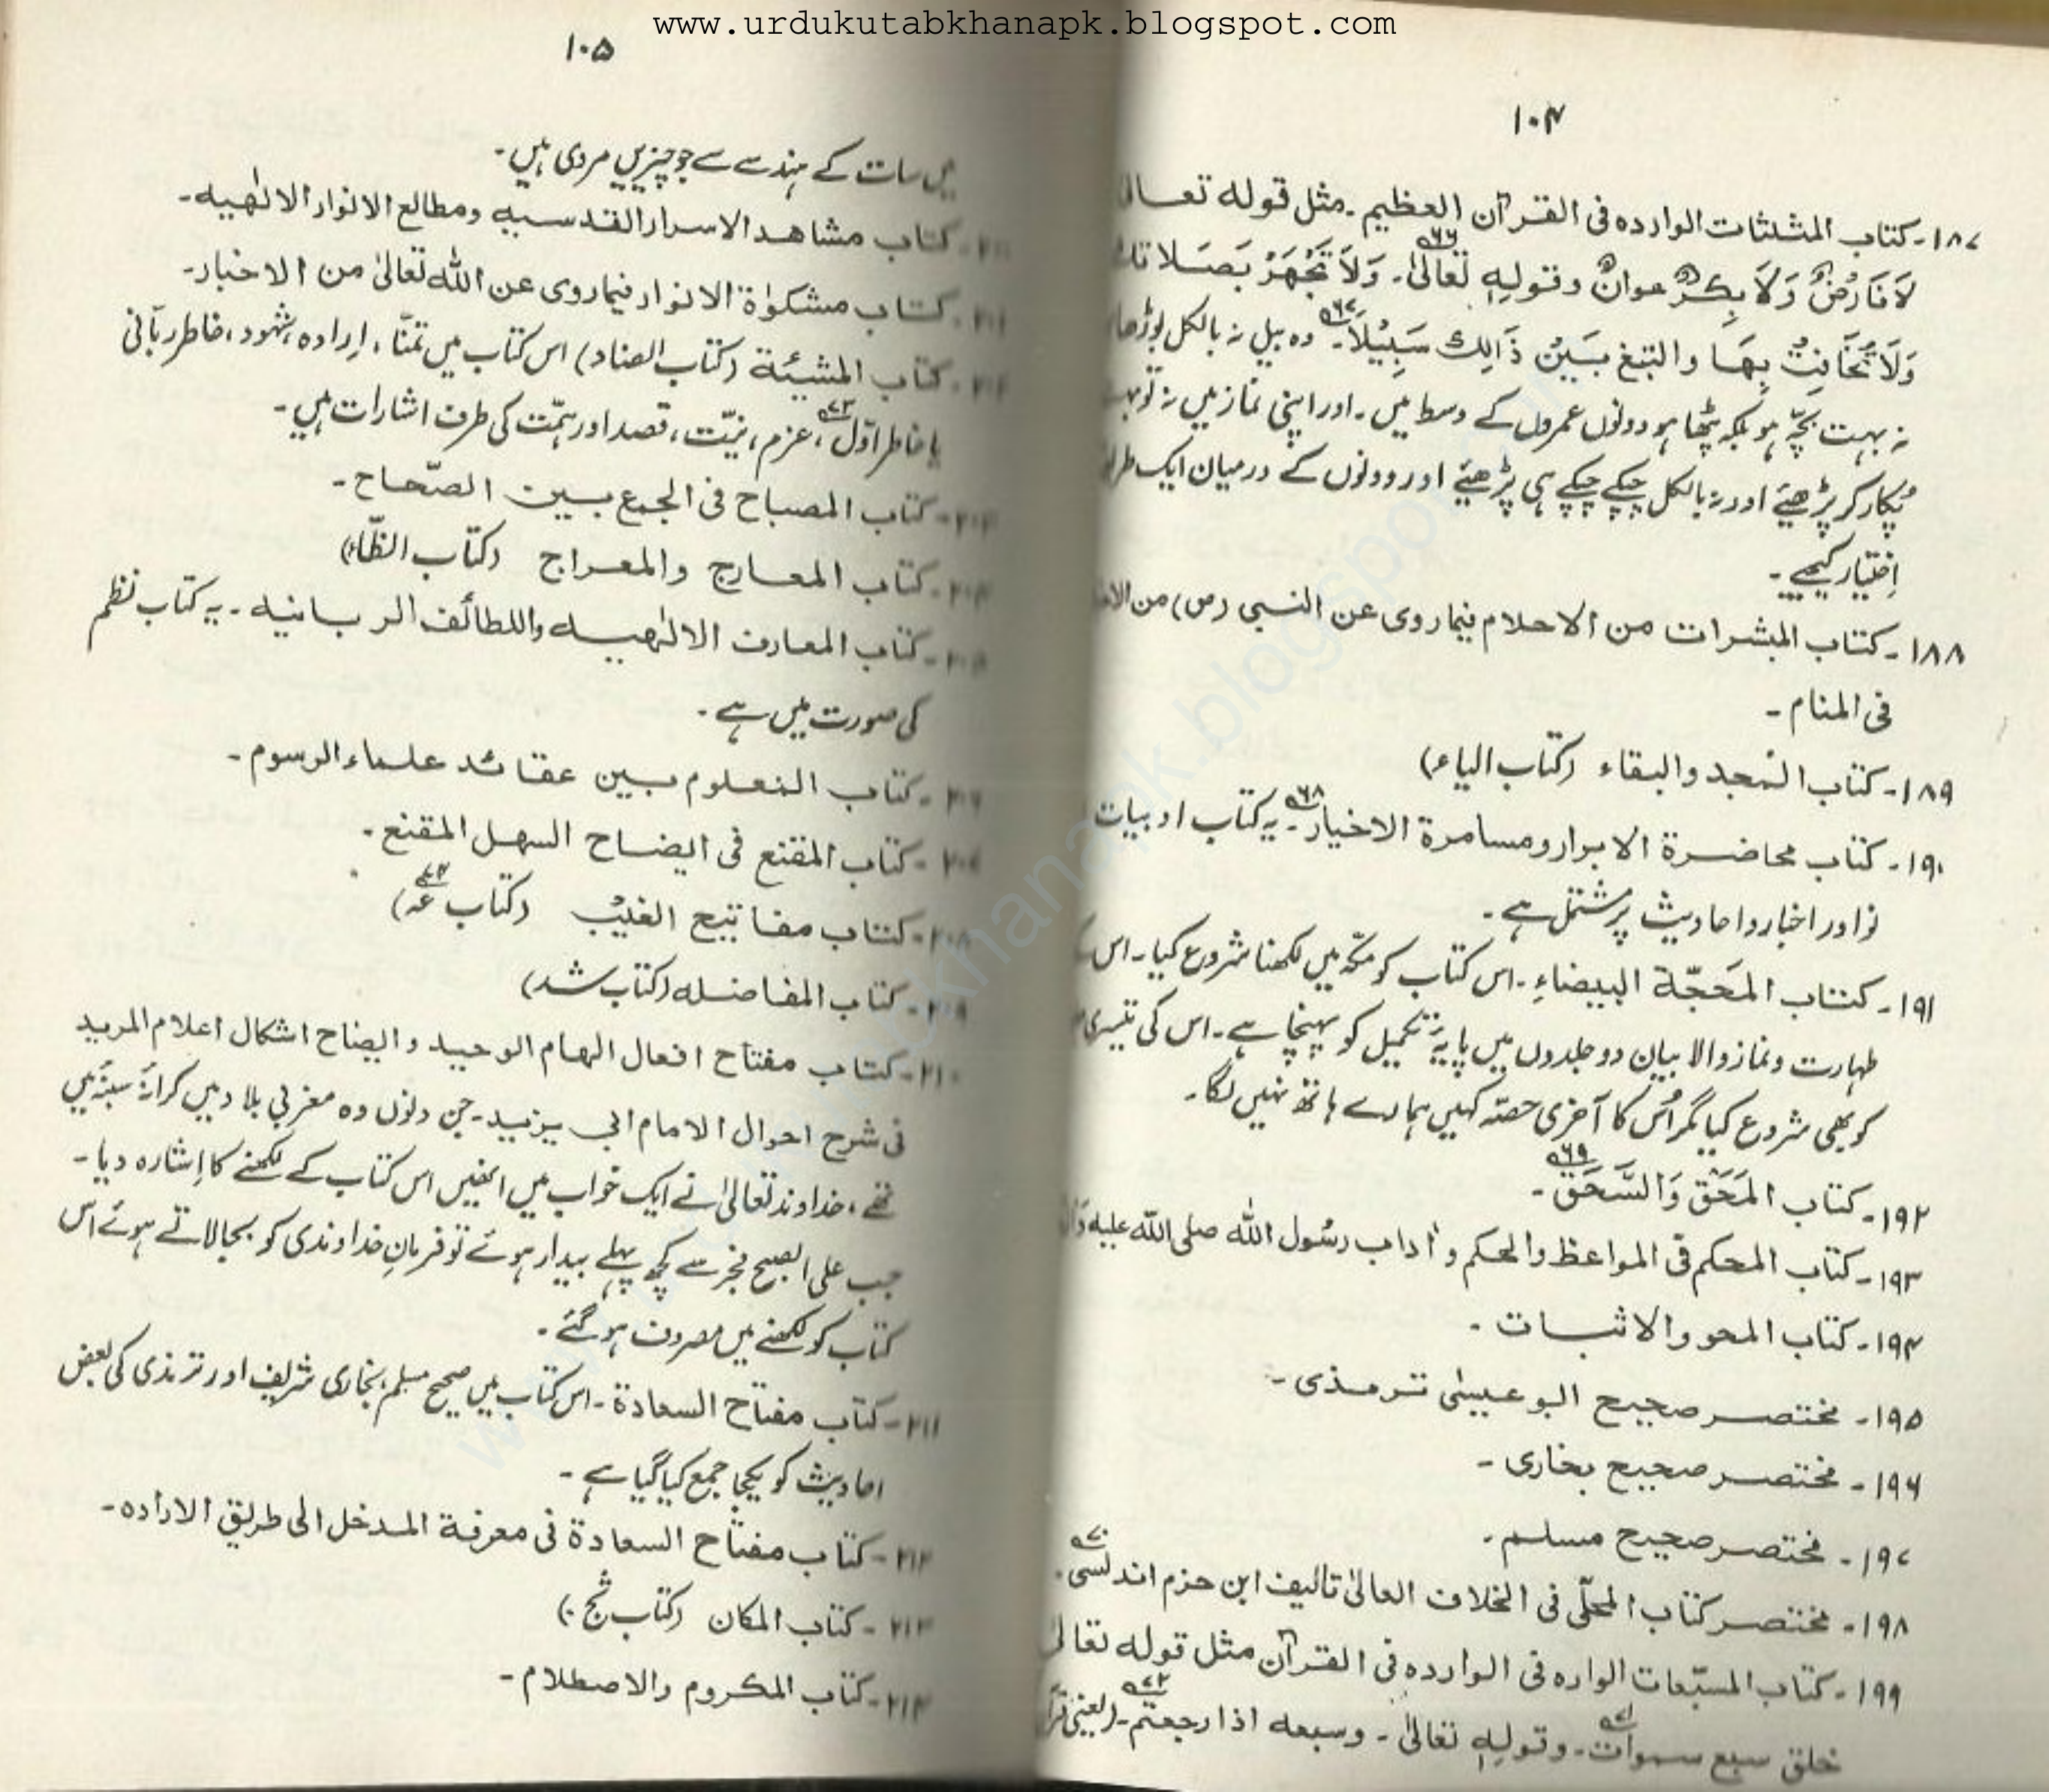 www.urdukutabkhanapk.blogspot.com
۱۰۴
۱۸۷۔ کتاب المثلثات الوارده فی القرآن العظیم۔ مثل قوله تعالیٰ
لَا فَارِضٌ وَلَا بِکرٌ عوانٌ وقولِهٖ تَعالیٰ۔ وَلَا تَجْهَرْ بَصَلاتك
وَلَا تُخَافِتْ بِهَا والبتغ بَسَیْنَ ذَالِكَ سَبِیْلاً۔ وہ بیل نہ بالکل بوڑھا
نہ بہت بچّہ ہو بلکہ پٹھا ہو دونوں عمروں کے وسط میں۔ اور اپنی نماز میں نہ تو بہت
پُکار کر پڑھیئے اور نہ بالکل چپکے چپکے ہی پڑھیئے اور دونوں کے درمیان ایک
اِختیار کیجیے۔
۱۸۸۔ کتاب المبشرات من الاحلام فیما روی عن النبی (ص) من
فی المنام۔
۱۸۹۔ کتاب المجد والبقاء (کتاب الیاء)
۱۹۰۔ کتاب محاضرة الابرار ومسامرة الاخیار۶۸۔ یہ کتاب ادبیات
نوادر اخبار واحادیث پر مشتمل ہے۔
۱۹۱۔ کتاب المَحَجّة البیضاءِ۔ اس کتاب کو مکّہ میں لکھنا شروع کیا۔ اس
طہارت ونماز والا بیان دو جلدوں میں پایۂ تکمیل کو پہنچا ہے۔ اس کی تیسری
کو بھی شروع کیا مگر اُس کا آخری حصّہ کہیں ہمارے ہاتھ نہیں لگا۔
۱۹۲۔ کتاب المَحَق وَالسَّحَق۶۹۔
۱۹۳۔ کتاب المحکم فی المواعظ والحکم و اٰداب رسُول اللہ صلی اللہ علیه
۱۹۴۔ کتاب المحو والاثبات۔
۱۹۵۔ مختصر صحیح ابو عیسٰی ترمذی۔
۱۹۶۔ مختصر صحیح بخاری۔
۱۹۷۔ مختصر صحیح مسلم۔
۱۹۸۔ مختصر کتاب المحلّی فی الخلاف العالیٰ تالیف ابن حزم اندلسی۷۰۔
۱۹۹۔ کتاب المسبّعات الواره فی الوارده فی القرآن مثل قوله تعالیٰ
خلق سبع سموات۷۱۔ وقولِهٖ تعالیٰ۔ وسبعه اذا رجعتم۷۲۔ (یعنی
۱۰۵
میں سات کے ہندسے سے جو چیزیں مروی ہیں۔
کتاب مشاهد الاسرار القدسیه ومطالع الانوار الالٰهیه۔
کتاب مشکوٰة الانوار فیما روی عن اللہ تعالیٰ من الاخبار۔
کتاب المشیئة (کتاب الصاد) اس کتاب میں تمنّا، اِرادہ، شہود، خاطر ربّانی
یا خاطر اوّل۷۳، عزم، نیّت، قصد اور ہمّت کی طرف اشارات ہیں۔
۲۰۳۔ کتاب المصباح فی الجمع بین الصّحاح۔
۲۰۴۔ کتاب المعارج والمعراج (کتاب الظّاء)
۲۰۵۔ کتاب المعارف الالٰهیه واللطائف الربانیه۔ یہ کتاب نظم
کی صورت میں ہے۔
۲۰۶۔ کتاب المعلوم بین عقائد علماء الرسوم۔
۲۰۷۔ کتاب المقنع فی ایضاح السهل المقنع۔
۲۰۸۔ کتاب مفاتیح الغیب (کتاب عه۷۴)
۲۰۹۔ کتاب المفاضله (کتاب شد)
۲۱۰۔ کتاب مفتاح افعال الهام الوحید وایضاح اشکال اعلام المرید
فی شرح احوال الامام ابی یزید۔ جن دنوں وہ مغربی بلاد میں کرانۂ سبتہ میں
تھے، خداوند تعالیٰ نے ایک خواب میں انھیں اس کتاب کے لکھنے کا اِشارہ دیا۔
جب علی الصبح فجر سے کچھ پہلے بیدار ہوئے تو فرمانِ خداوندی کو بجالاتے ہوئے اس
کتاب کو لکھنے میں مصروف ہو گئے۔
۲۱۱۔ کتاب مفتاح السعادة۔ اس کتاب میں صحیح مسلم، بخاری شریف اور ترمذی کی بعض
احادیث کو یکجا جمع کیا گیا ہے۔
۲۱۲۔ کتاب مفتاح السعادة فی معرفة المدخل الی طریق الاراده۔
۲۱۳۔ کتاب المکان (کتاب
۲۱۴۔ کتاب المکروم والاصطلام۔